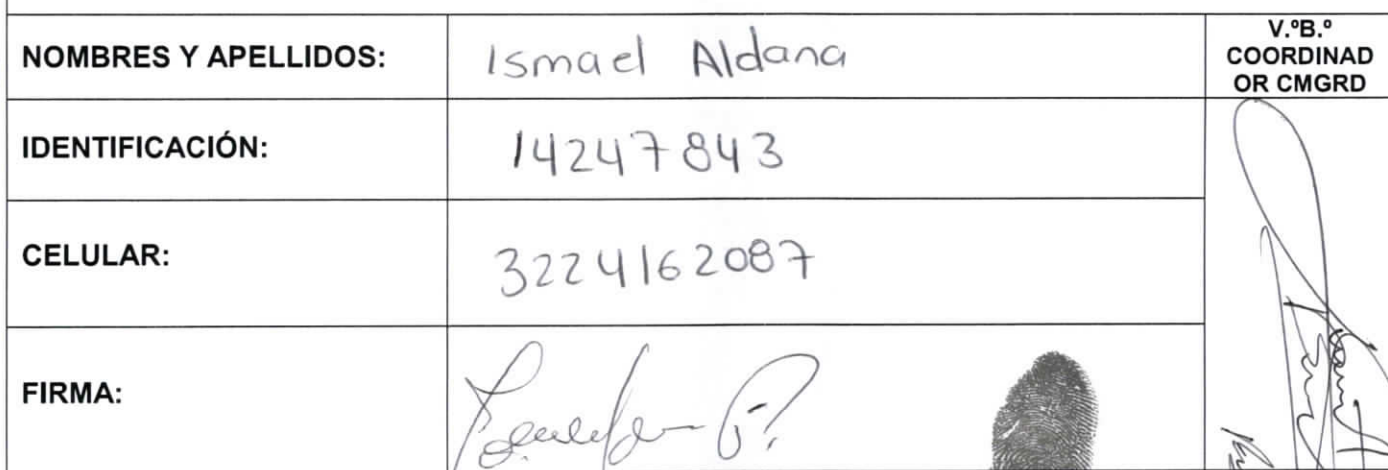 NOMBRES Y APELLIDOS: Ismael Aldana
V.ºB.º
COORDINAD
OR CMGRD
IDENTIFICACIÓN: 14247843
CELULAR: 3224162087
FIRMA: